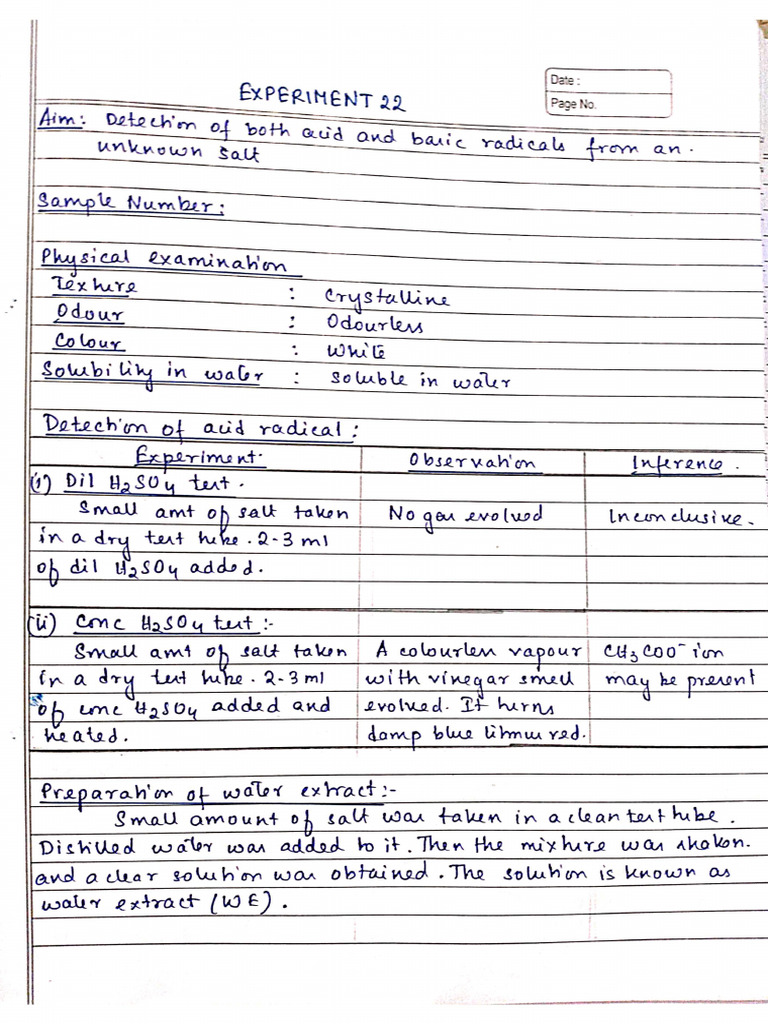 Date :
Page No.
EXPERIMENT 22
Aim: Detection of both acid and basic radicals from an
unknown salt
Sample Number:
Physical examination
Texture : Crystalline
Odour : Odourless
Colour : White
Solubility in water : soluble in water
Detection of acid radical:
Experiment. Observation Inference.
(i) Dil H₂SO₄ test.
Small amt of salt taken No gas evolved Inconclusive.
in a dry test tube. 2-3 ml
of dil H₂SO₄ added.
(ii) Conc H₂SO₄ test:-
Small amt of salt taken A colourless vapour CH₃COO⁻ ion
in a dry test tube. 2-3 ml with vinegar smell may be present
of conc H₂SO₄ added and evolved. It turns
heated. damp blue litmus red.
Preparation of water extract:-
Small amount of salt was taken in a clean test tube.
Distilled water was added to it. Then the mixture was shaken.
and a clear solution was obtained. The solution is known as
water extract (WE).